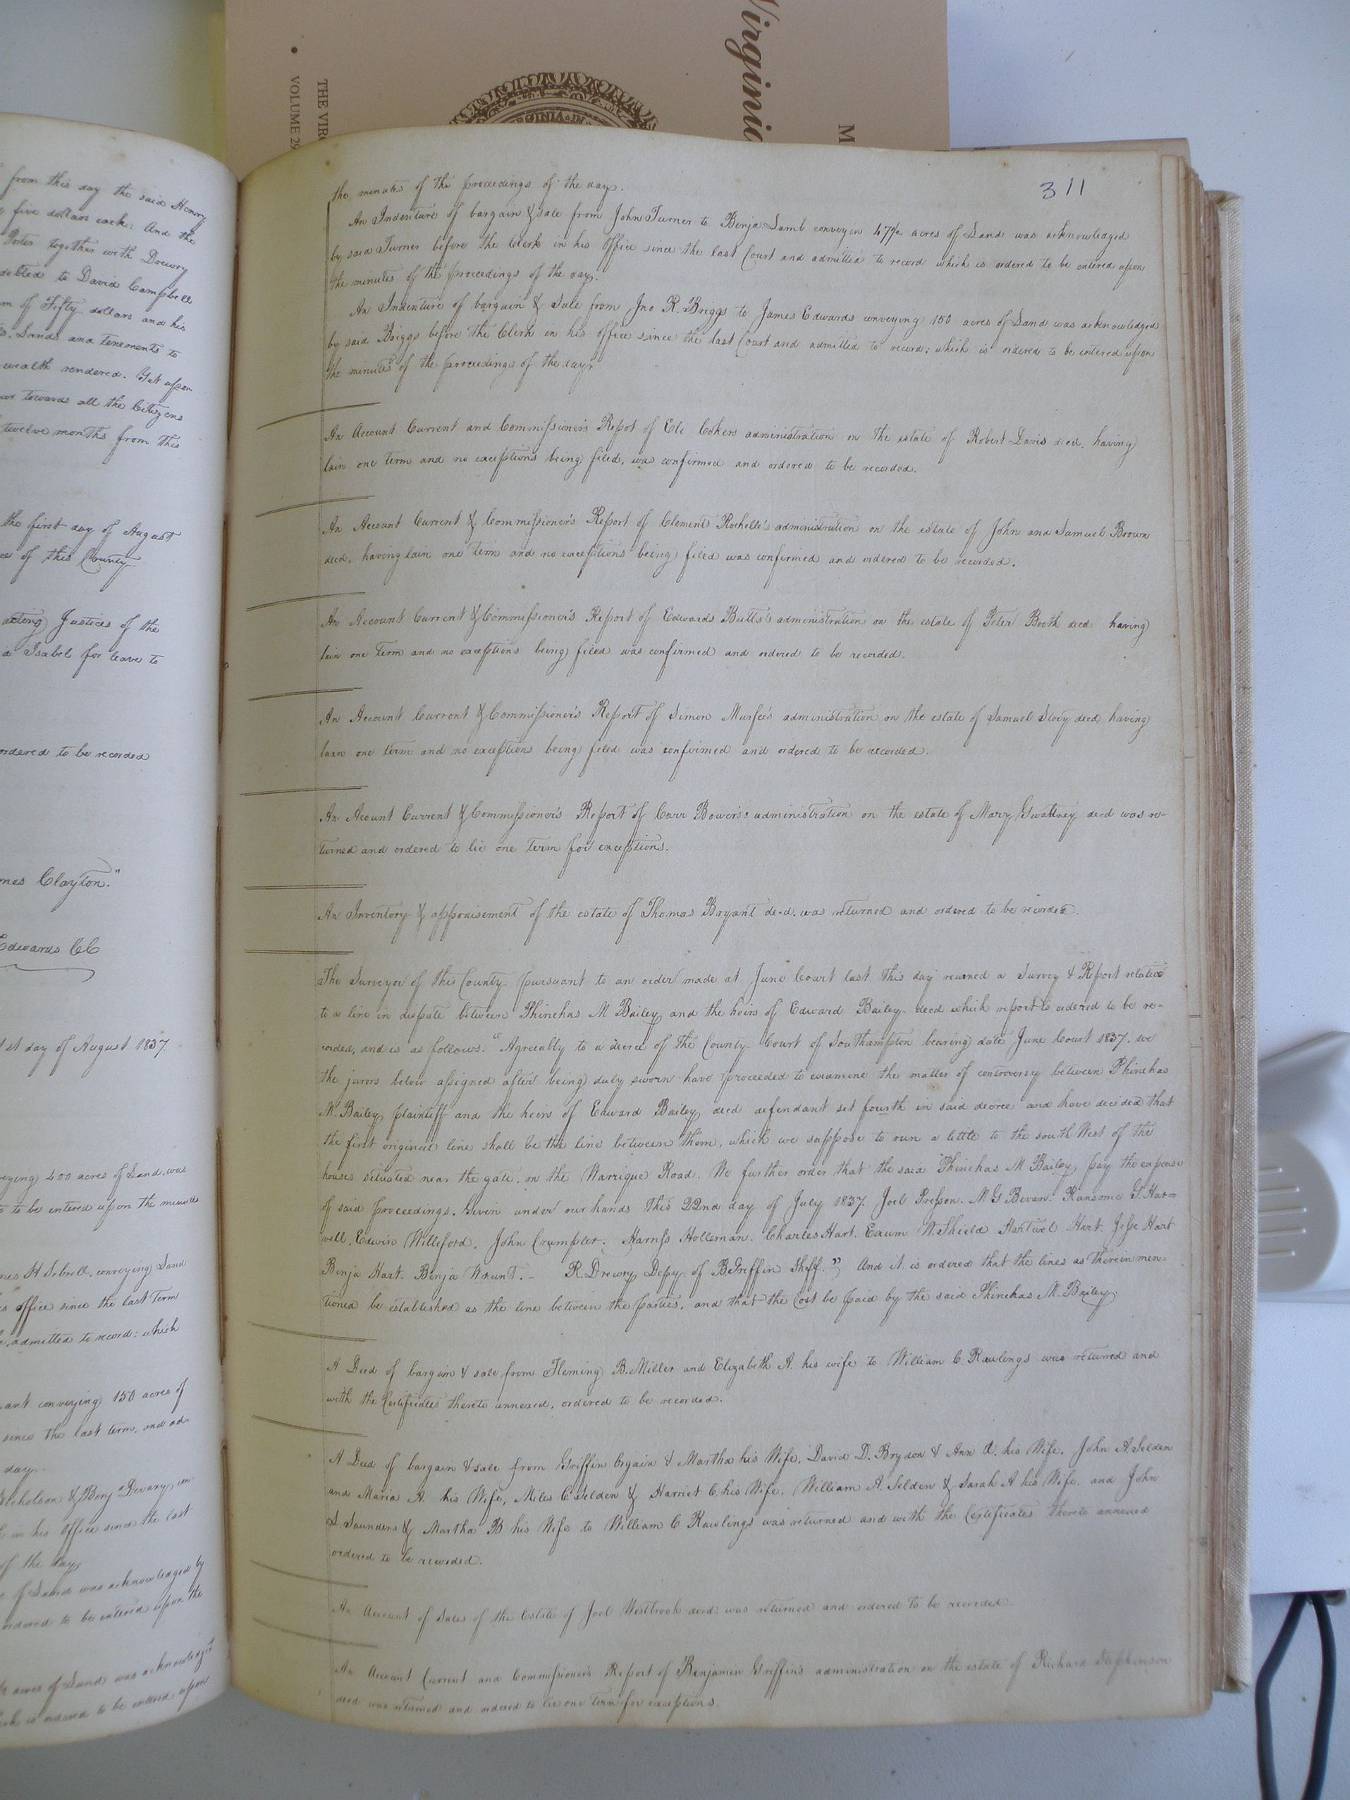 Virginia
M
THE VIR
VOLUME 29
from this day the said Henry
five dollars each: And the
together with Drewry
debted to David Campbell
m of Fifty dollars and his
Lands and tenements to
wealth rendered. Yet upon
towards all the Citizens
twelve months from this
the first day of August
of this County
acting Justices of the
a Isabel for leave to
ordered to be recorded
mes Clayton."
Edwards CC
1st day of August 1837.
veying 400 acres of Land, was
to be entered upon the minutes
mes H Sebrell, conveying Land
office since the last Term
admitted to record: which
ant conveying 150 acres of
since the last term, and ad-
day.
Nicholson & Benj Devany, in
in his office since the last
of the day,
of Land was acknowledged by
ordered to be entered upon the
acres of Land was acknowledged
ich is ordered to be entered upon
311
the minutes of the proceedings of the day.
An Indenture of bargain & sale from John Turner to Benja Lamb conveyin acres of Land was acknowledged
by said Turner before the Clerk in his Office since the last Court and admitted to record which is ordered to be entered upon
the minutes of the proceedings of the day.
An Indenture of bargain & Sale from Jno R. Briggs to James Edwards conveying 150 acres of Land was acknowledged
by said Briggs before the Clerk in his office since the last Court and admitted to record; which is ordered to be entered upon
the minutes of the proceedings of the day,
An Account Current and Commissioner's Report of Eli Cokers administration on the estate of Robert Davis decd, having
lain one term and no exceptions being filed, was confirmed and ordered to be recorded.
An Account Current & Commissioner's Report of Clement Rochelle's administration on the estate of John and Samuel Brown
decd, having lain one term and no exceptions being filed was confirmed and ordered to be recorded.
An Account Current & Commissioner's Report of Edwards Butts's administration on the estate of Peter Booth decd having
lain one term and no exceptions being filed was confirmed and ordered to be recorded.
An Account Current & Commissioner's Report of Simon Murfee's administration on the estate of Samuel Story decd having
lain one term and no exceptions being filed was confirmed and ordered to be recorded.
An Acount Current & Commissioner's Report of Carr Bowers's administration on the estate of Mary Gwaltney decd was re-
turned and ordered to lie one term for exceptions.
An Inventory & appraisement of the estate of Thomas Bryant decd. was returned and ordered to be recorded.
The Surveyor of the County pursuant to an order made at June Court last this day returned a Survey & Report relative
to a line in dispute between Phinehas M Bailey and the heirs of Edward Bailey decd which report is ordered to be re-
corded, and is as follows. "Agreeably to a decree of the County Court of Southampton bearing date June Court 1837. we
the jurors below assigned after being duly sworn have proceeded to examine the matter of controversy between Phinehas
M. Bailey plaintiff and the heirs of Edward Bailey decd defendant set fourth in said decree and have decided that
the first original line shall be the line between them, which we suppose to run a little to the south West of the
house situated near the gate, on the Warrique Road. We further order that the said Phinehas M Bailey pay the expense
of said proceedings. Given under our hands This 22nd day of July 1837. Joel Presson. M. G. Bevan. Ransome G. Har-
well. Edwin Williford. John Crumpler. Harriss Holleman. Charles Hart. Exum W. Shield Hartwel Hart. Jesse Hart
Benja Hart. Benja W. R. Drewry Depy of B. Griffin Shff." And it is ordered that the lines as therein men-
tioned be established as the line between the parties, and that the Cost be paid by the said Phinehas M. Bailey.
A Deed of bargain & sale from Fleming B. Miller and Elizabeth A. his wife to William C Rawlings was returned and
with the Certificates thereto annexed, ordered to be recorded.
A Deed of bargain & sale from Griffin Orgain & Martha his Wife, David D. Brydon & Ann A. his Wife, John A. Selden
and Maria A. his Wife, Miles C Selden & Harriet C. his Wife, William A. Selden & Sarah A his Wife, and John
S. Saunders & Martha B his Wife to William C Rawlings was returned and with the Certificates thereto annexed
ordered to be recorded.
An Account of Sales of the Estate of Joel Westbrook decd was returned and ordered to be recorded.
An Account Current and Commissioner's Report of Benjamin Griffin's administration on the estate of Richard Stephenson
decd was returned and ordered to lie one term for exceptions.